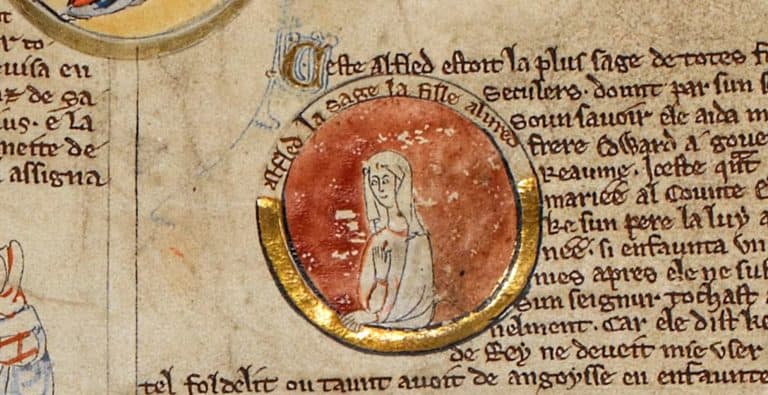 r to
euisa en
de sa
ius. e la
mette de
assigna
Alfled la sage la fille alured
Ceste Alfled estoit la plus sage de totes
Seculers. dount par sun
Soun sauoir ele aida
frere Edward a gou
Reaume. Iceste
mariee al Counte
ke sun pere la luy a
nee. si enfaunta un
mes apres ele ne
Sun seignur tochast
nelment. Car ele dist ke
de Rey ne deueit mie user
tel foldelit ou taunt auoit de angoysse en enfaunte